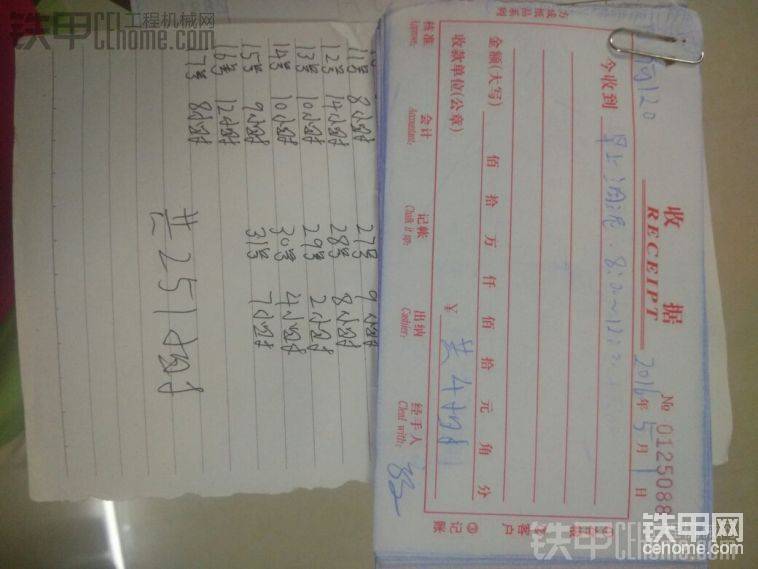 铁甲 工程机械网
CEhome.com
11号 8小时
12号 14小时
13号 10小时
14号 10小时
15号 9小时
16号 12小时
17号 8小时
27号 9小时
28号 8小时
29号 2小时
30号 4小时
31号 7小时
共251小时
方成纸品系列
收 据
RECEIPT
No 0125088
2016年5月1日
今收到
早上
金额(大写) 佰 拾 万 仟 佰 拾 元 角 分
¥ 共4小时
收款单位(公章)
核准 会计 记帐 出纳 经手人
Approve: Accountant: Chalk it up: Cashier: Deal with:
②客户
③记账
铁甲网
www.cehome.com